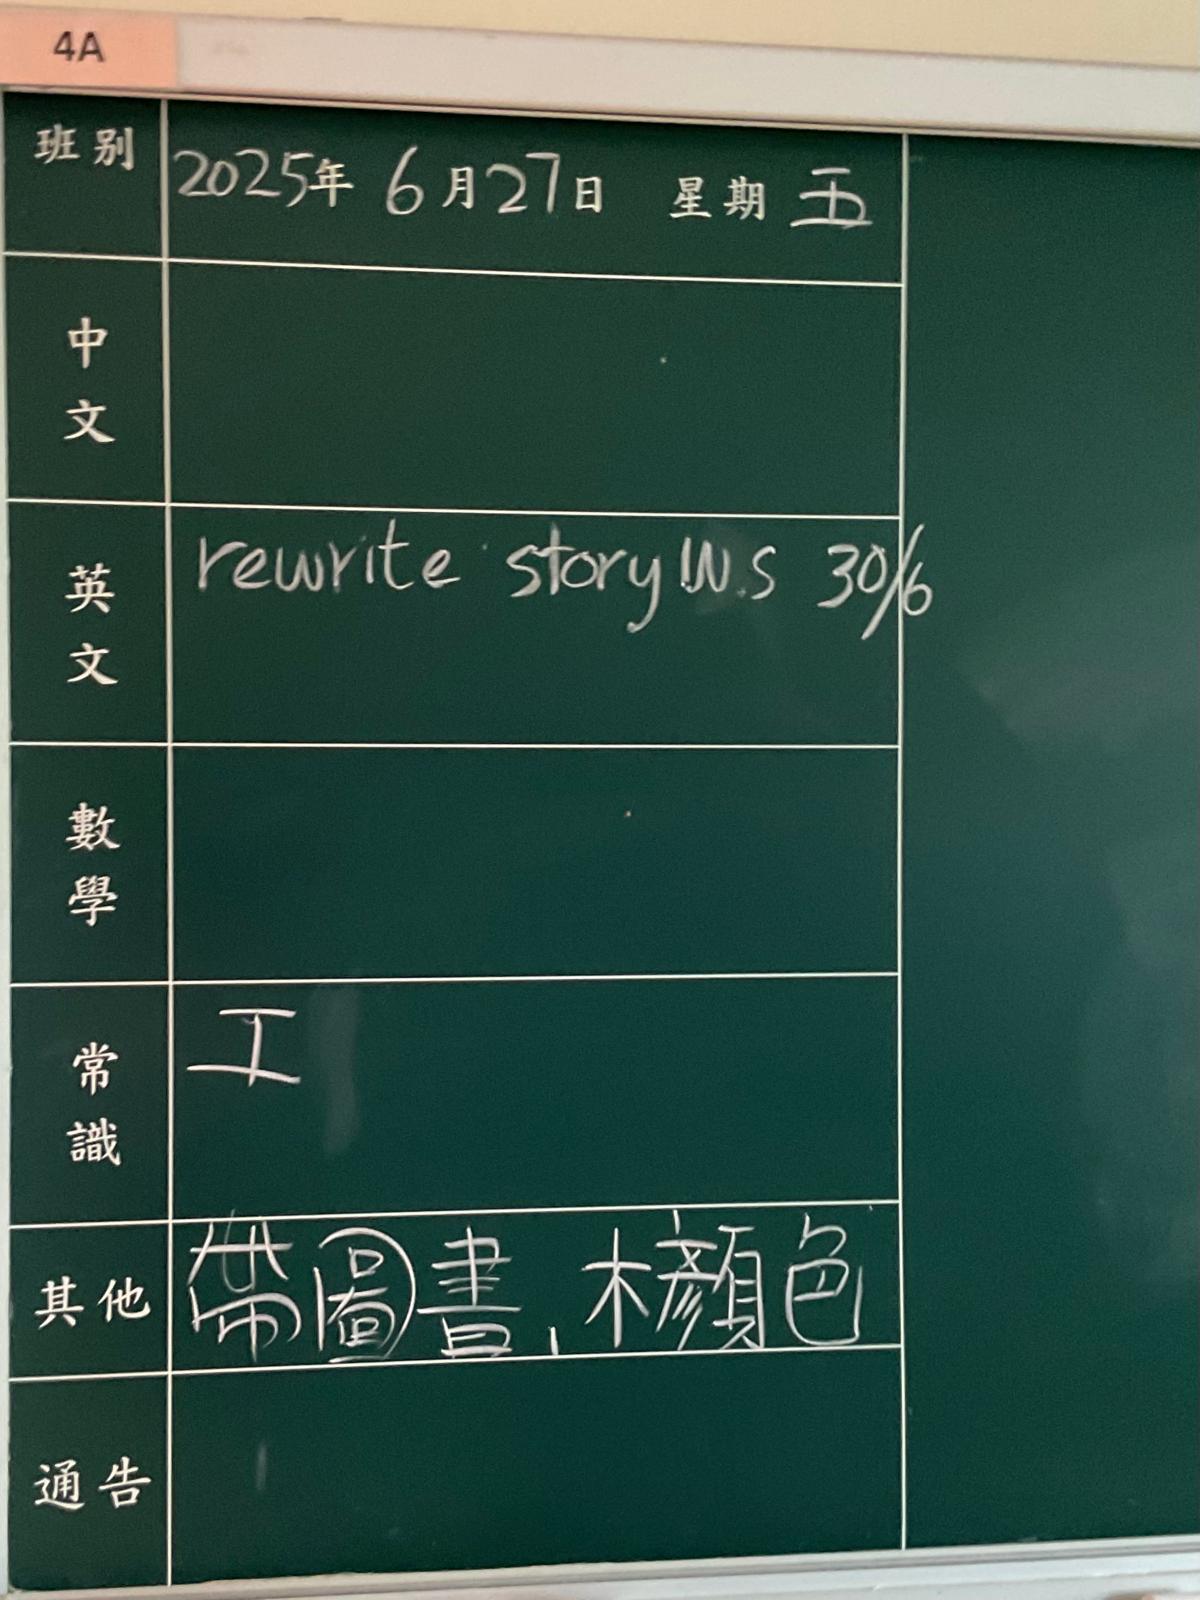 4A
班別 2025年 6月27日 星期 五
中文
英文 rewrite story W.S 30/6
數學
常識 工
其他 帶圖書, 木顏色
通告